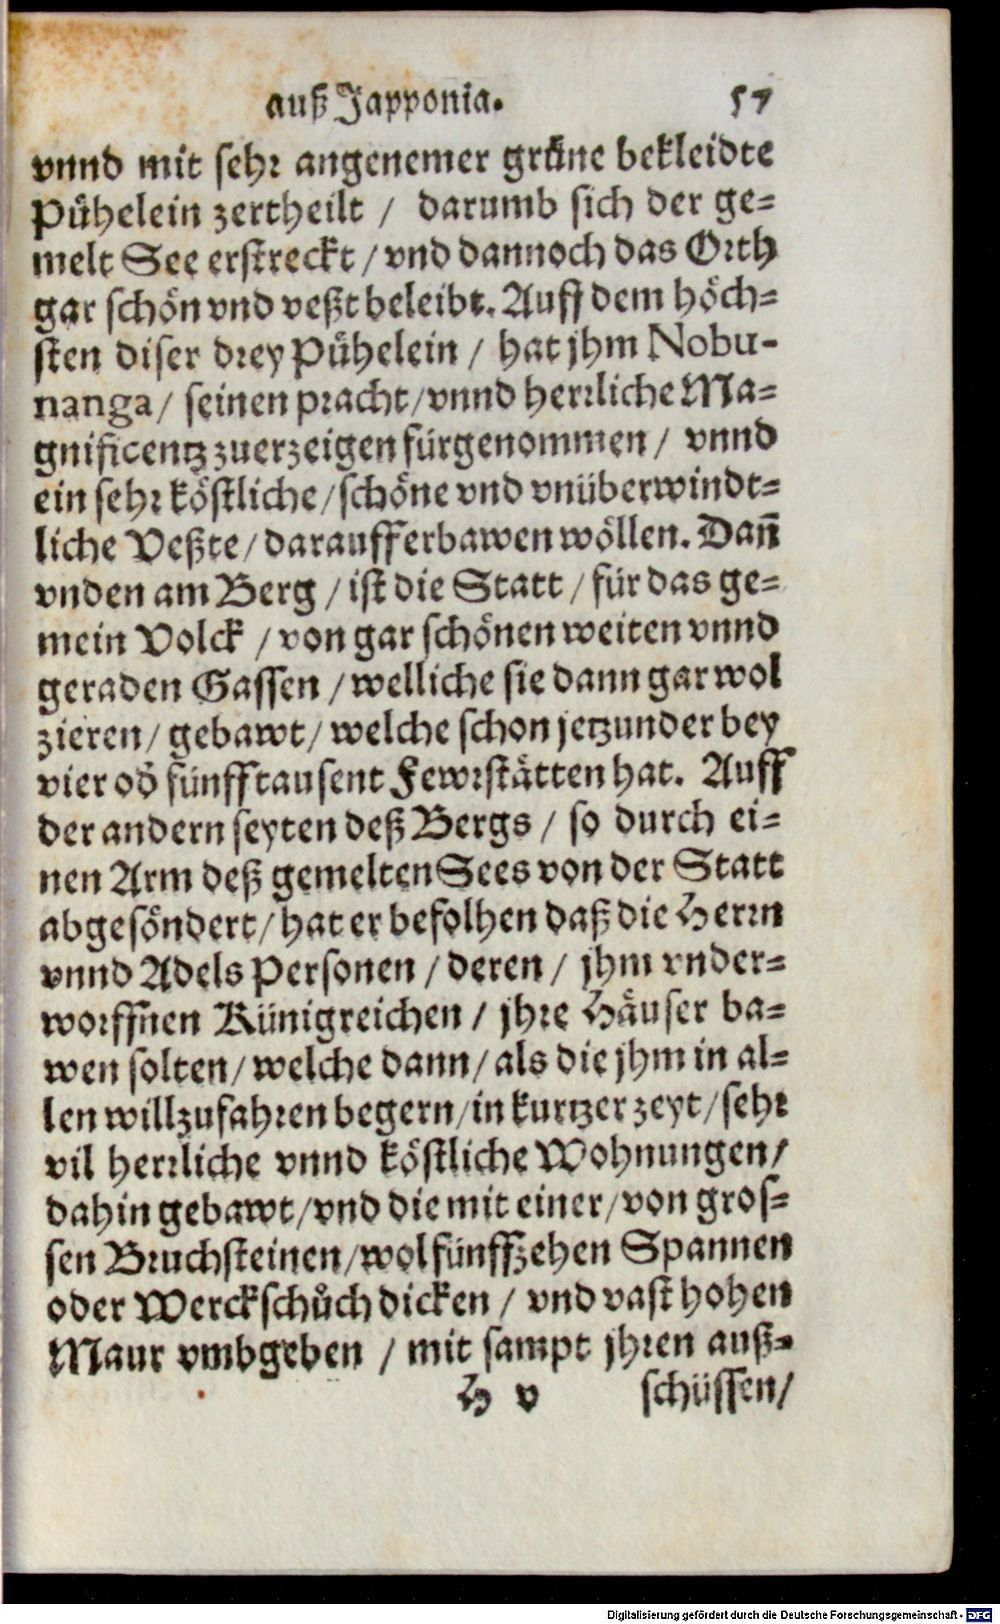 auß Japponia. 57
vnnd mit sehr angenemer grůne bekleidte
Pühelein zertheilt / darumb sich der ge=
melt See erstreckt / vnd dannoch das Orth
gar schön vnd veßt beleibt. Auff dem höch=
sten diser drey Pühelein / hat jhm Nobu-
nanga / seinen pracht / vnnd herrliche Ma=
gnificentz zuerzeigen fürgenommen / vnnd
ein sehr köstliche / schöne vnd vnüberwindt=
liche Veßte / darauff erbawen wöllen. Dañ
vnden am Berg / ist die Statt / für das ge=
mein Volck / von gar schönen weiten vnnd
geraden Gassen / welliche sie dann gar wol
zieren / gebawt / welche schon jetzunder bey
vier od̕ fünfftausent Fewrstätten hat. Auff
der andern seyten deß Bergs / so durch ei=
nen Arm deß gemelten Sees von der Statt
abgesöndert / hat er befolhen daß die Herrn
vnnd Adels Personen / deren / jhm vnder=
worffnen Künigreichen / jhre Häuser ba=
wen solten / welche dann / als die jhm in al=
len willzufahren begern / in kurtzer zeyt / sehr
vil herrliche vnnd köstliche Wohnungen /
dahin gebawt / vnd die mit einer / von gros=
sen Bruchsteinen / wol fünffzehen Spannen
oder Werckschůch dicken / vnd vast hohen
Maur vmbgeben / mit sampt jhren auß=
H v schüssen /
Digitalisierung gefördert durch die Deutsche Forschungsgemeinschaft - DFG